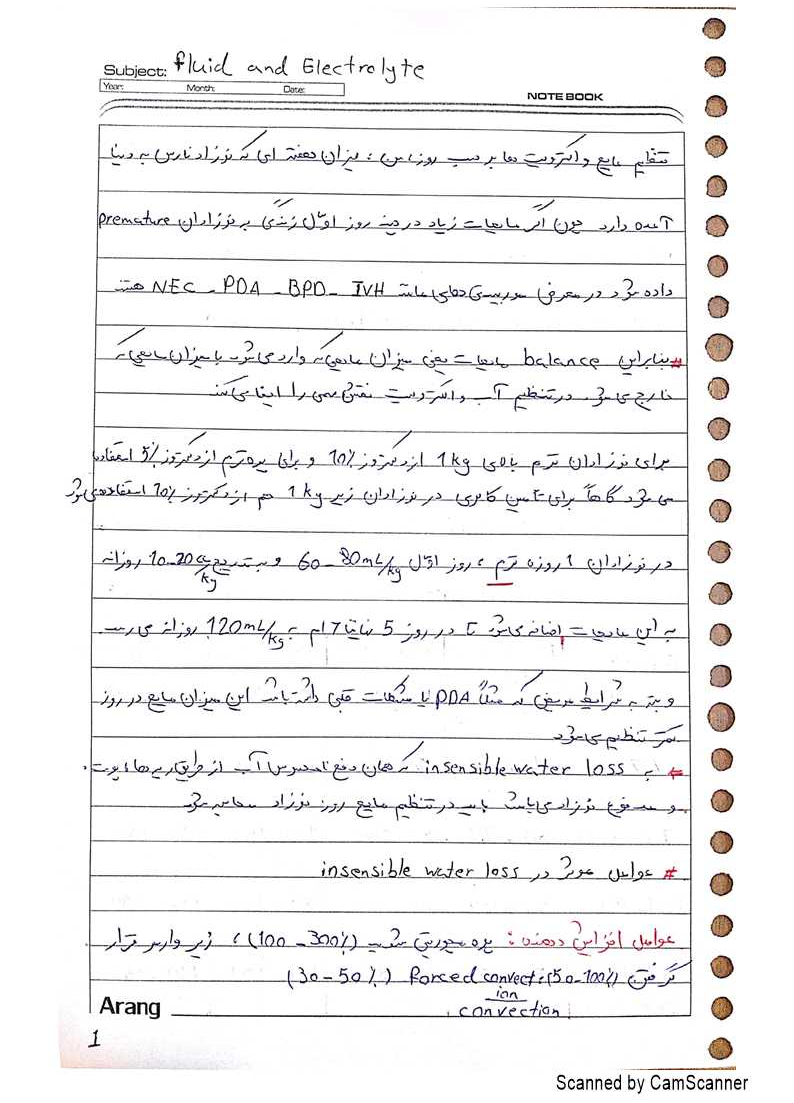 Subject: fluid and Electrolyte
Year: Month: Date:
NOTE BOOK
تنظیم مایع و الکترولیت ها بر حسب روز، سن، میزان هفته ای که نوزاد نارس به دنیا
آمده دارد چون اگر مایعات زیاد در چند روز اول زندگی به نوزادان premature
داده شود در معرض موربیدیتی های مانند NEC - PDA - BPD - IVH هستند
# بنابراین balance مایعات یعنی میزان مایعی که وارد می شود با میزان مایعی که
خارج می شود در تنظیم آب و الکترولیت نقش مهمی را ایفا می کند
برای نوزادان ترم بالای 1 kg از دکتروز 10% و برای پره ترم از دکتروز 5% استفاده
می شود گاهاً برای تامین کالری در نوزادان زیر 1 kg هم از دکتروز 10% استفاده می شود
در نوزادان 1 روزه ترم، روز اول 60-80 mL/kg و به تدریج 10-20 cc/kg روزانه
به این مایعات اضافه می شود تا در روز 5 نهایتا 7 ام به 120 mL/kg روزانه می رسد
و بسته به شرایط مریض که مثلاً PDA یا مشکلات قلبی داشته باشد این میزان مایع در روز
کمتر تنظیم می شود
* به insensible water loss که همان دفع نامحسوس آب از طریق ریه ها، پوست
و مدفوع نوزاد می باشد باید در تنظیم مایع روز نوزاد محاسبه شود
# عوامل موثر در insensible water loss
عوامل افزایش دهنده: پره مچوریتی شدید (100-300%)، زیر وارمر قرار
گرفتن (50-100%) forced convection (30-50%)
convection
Arang
1
Scanned by CamScanner